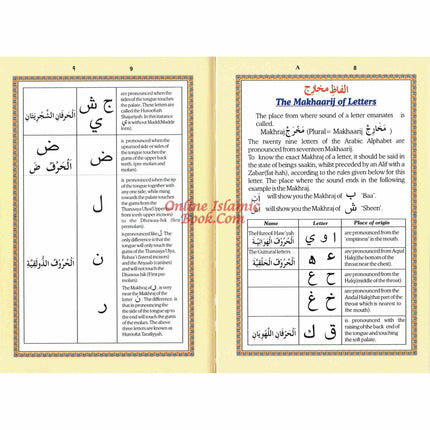 ٨
8
الفاظ مخارج
The Makhaarij of Letters
The place from where sound of a letter emanates is
called.
Makhraj مَخْرَجْ (Plural = Makhaarij مَخَارِجْ )
The twenty nine letters of the Arabic Alphabet are
pronounced from seventeen Makhraj.
To know the exact Makhraj of a letter, it should be said in
the state of beings saakin, whilst preceded by an Alif with a
Zabar(fat-hah), according to the rules given below for each letter.
The place where the sound ends in the following
example is the Makhraj.
will show you the Makhraj of ب 'Baa'.
will show you the Makhraj of ش 'Sheen'.
Name Letter Place of origin
The Huroof Haw'yah
اَلْحُرُوْفُ الْهَوَائِيَّة
ا و ي
are pronounced from the
'emptiness' in the mouth.
The Guttural letters
اَلْحُرُوْفُ الْحَلْقِيَّة
ء ه
are pronounced from Aqsal
Halq(the bottom of the
throat near the chest).
ع ح
are pronounced from the
Halq(middle of the throat).
غ خ
are pronounced from the
Andal Halq(that part of the
throat which is nearest to
the mouth).
اَلْحَرْفَانِ اللَّهْوِيَانِ
ق ك
is pronounced with
raising of the back end of
the tongue and touching the
soft palate.
٩
9
ج ش
ي
are pronounced when the
sides of the tongue touches
the palate. These letters are
called the Huroofush
Shajariyah. In this instance
ي is without Madd(Madde
leen).
ض
اَلْحَرْفُ ض
is pronounced when the
upturned side or sides of
the tongue touches the
gums of the upper back
teeth. (pre molars and
molars).
ل
اَلْحُرُوْفُ الذَّوْلَقِيَّة
is pronounced when the tip
of the tongue together with
any one side, while rising
towards the palate touches
the gums from the
ن
is pronounced like ل. The
only difference is that the
tongue will only touch the
gums of the
and will not touch the
ر
The Makhraj of ر, is very
near the Makhraj of the
letter ن. The difference is
that in pronouncing it the
side of the tongue up to the
end will touch the gums
of the molars. The above
three letters are known as
Huroofut Tarafiyyah.
Online Islamic
Book.Com